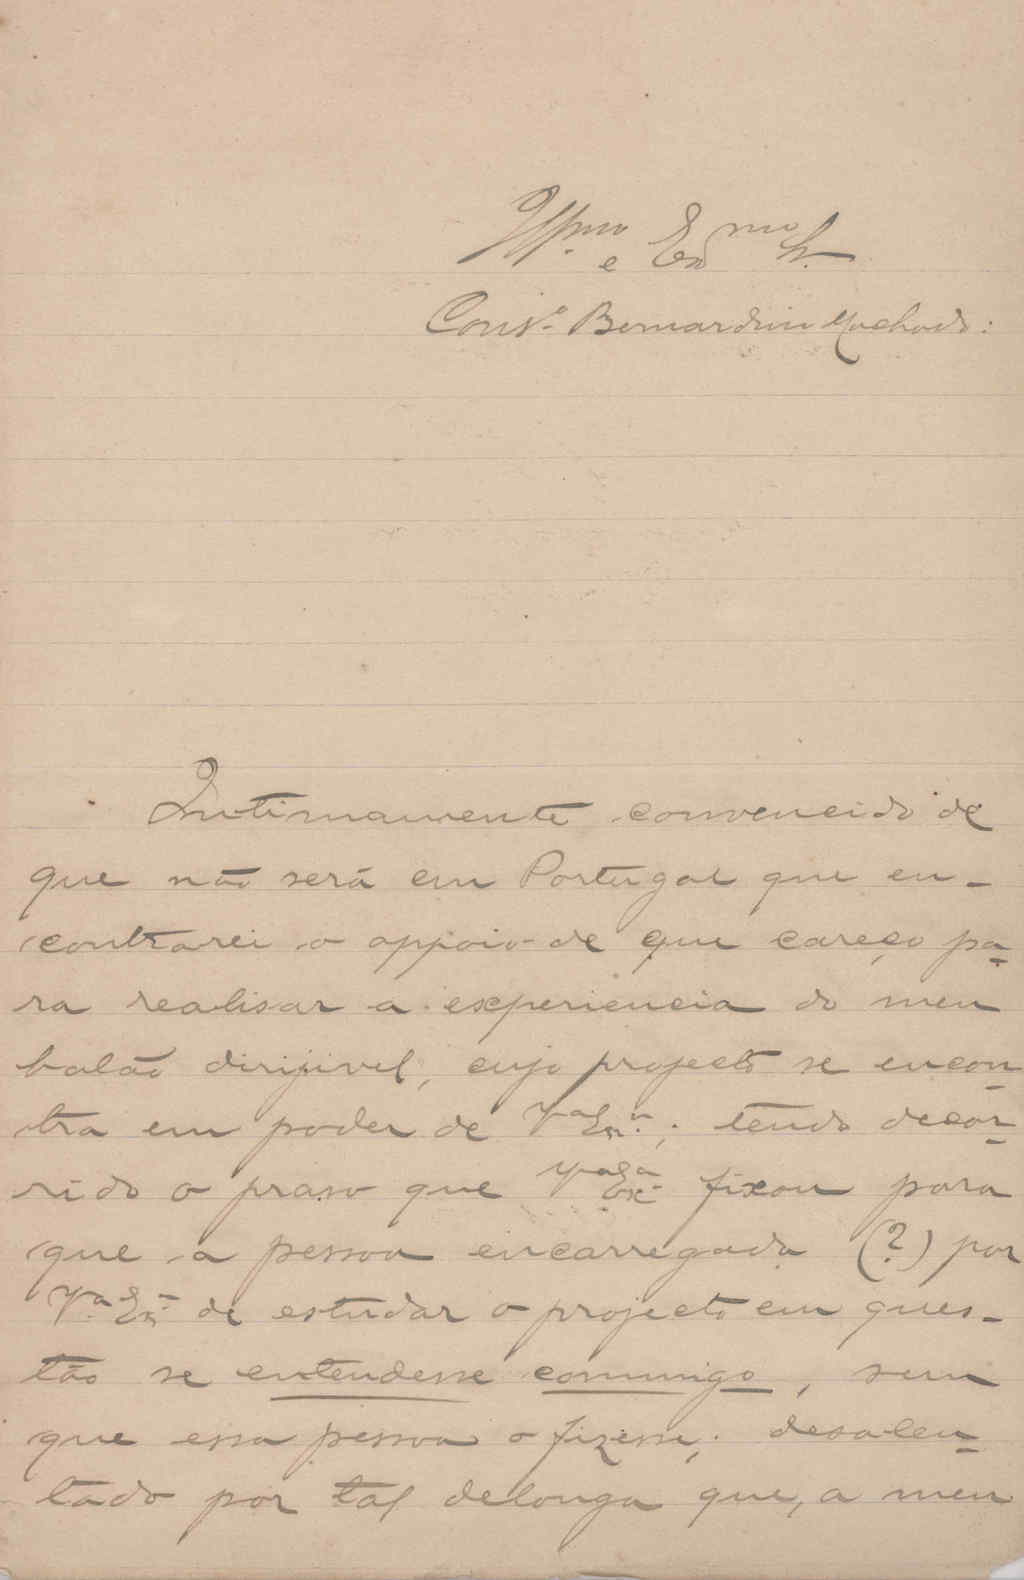 Illmo e Exmo Sr.
Consº Bernardino Machado:
Intimamente convencido de
que não será em Portugal que en-
contrarei o appoio de que careço pa-
ra realisar a experiencia do meu
balão dirijivel, cujo projecto se encon-
tra em poder de Vª Exª; tendo decor-
rido o praso que Vª Exª fixou para
que a pessoa encarregada (?) por
Vª Exª de estudar o projecto em ques-
tão se entendesse commigo, sem
que essa pessoa o fizesse; desalen-
tado por tal delonga que, a meu